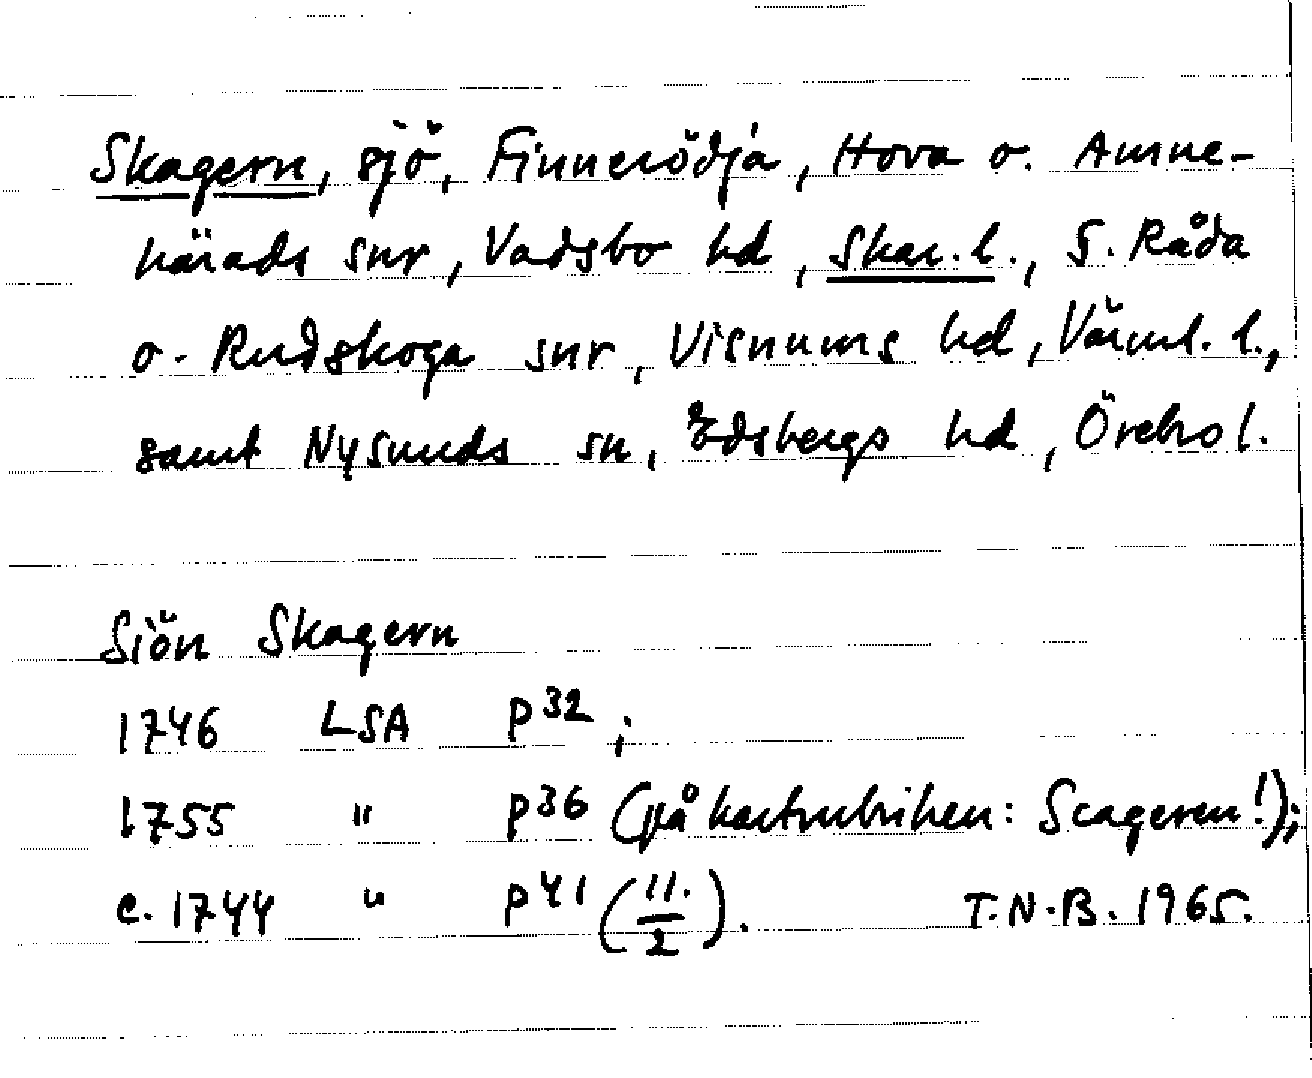 Skagern, sjö, Finnerödja, Hova o. Amne-
härads snr, Vadsbo hd, Skar. l., S. Råda
o. Rudskoga snr, Visnums hd, Värml. l.,
samt Nysunds sn, Edsbergs hd, Örebro l.
Siön Skagern
1746 LSA P32;
1755 " P36 (på kartrubriken: Scageren!);
c. 1744 " P41 (11./2). T.N.B. 1965.